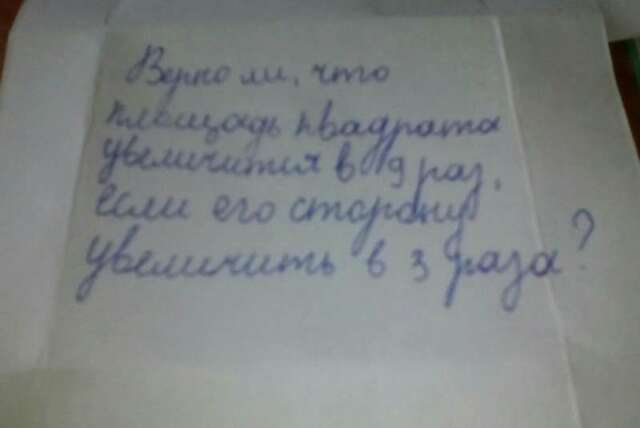 Верно ли, что
площадь квадрата
увеличится в 9 раз,
если его сторону
увеличить в 3 раза?